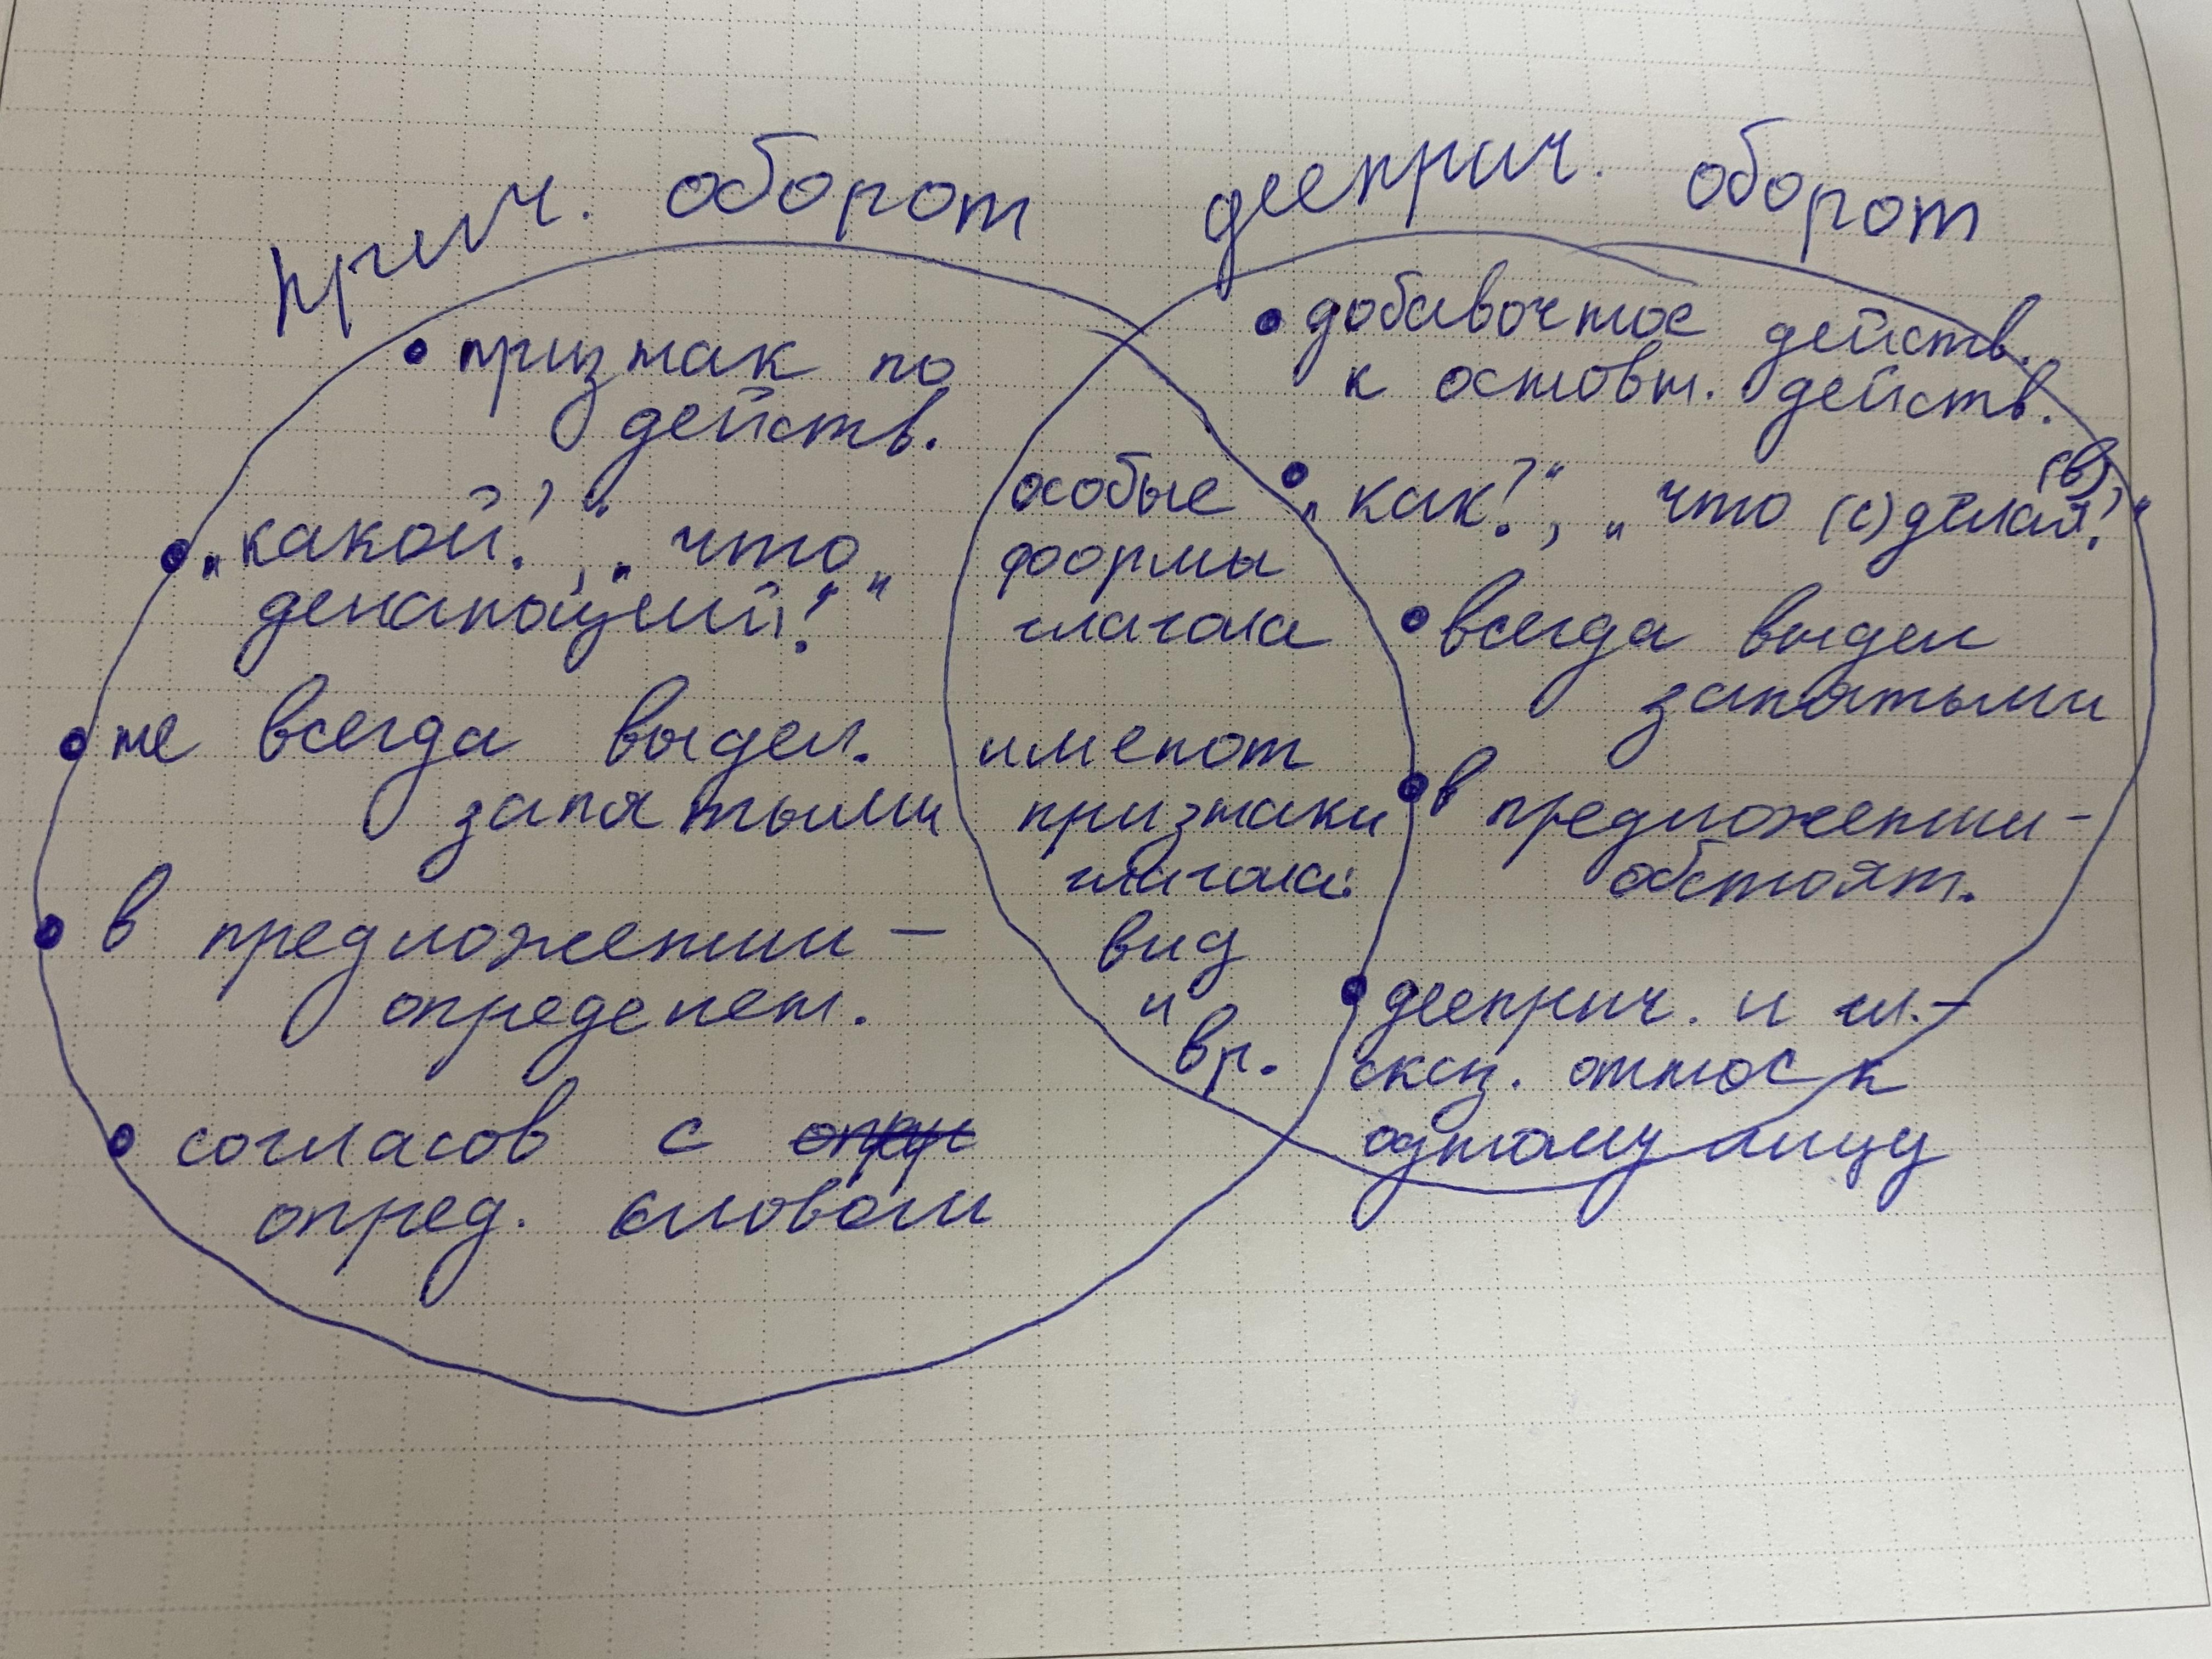 прич. оборот
• признак по
действ.
• „какой?“, „что
делающий?“
• не всегда выдел.
запятыми
• в предложении –
определен.
• согласов с
опред. словом
особые
формы
глагола
имеют
признаки
глагола:
вид
и
вр.
дееприч. оборот
• добавочное действ.
к основн. действ.
• „как?“, „что (с)делая(в)?“
• всегда выдел
запятыми
• в предложении –
обстоят.
• дееприч. и гл.–
сказ. относ к
одному лицу